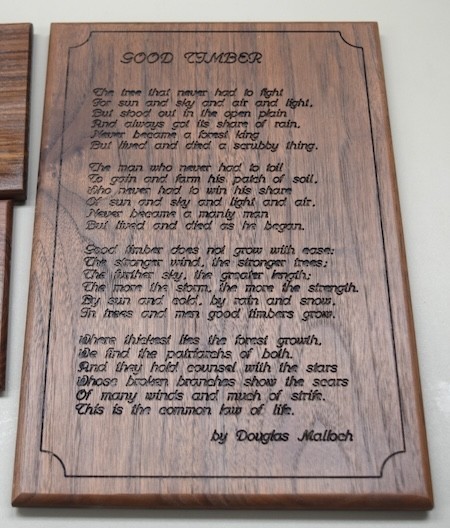 GOOD TIMBER
The tree that never had to fight
For sun and sky and air and light,
But stood out in the open plain
And always got its share of rain,
Never became a forest king
But lived and died a scrubby thing.
The man who never had to toil
To gain and farm his patch of soil,
Who never had to win his share
Of sun and sky and light and air,
Never became a manly man
But lived and died as he began.
Good timber does not grow with ease:
The stronger wind, the stronger trees;
The further sky, the greater length;
The more the storm, the more the strength.
By sun and cold, by rain and snow,
In trees and men good timbers grow.
Where thickest lies the forest growth,
We find the patriarchs of both.
And they hold counsel with the stars
Whose broken branches show the scars
Of many winds and much of strife.
This is the common law of life.
by Douglas Malloch